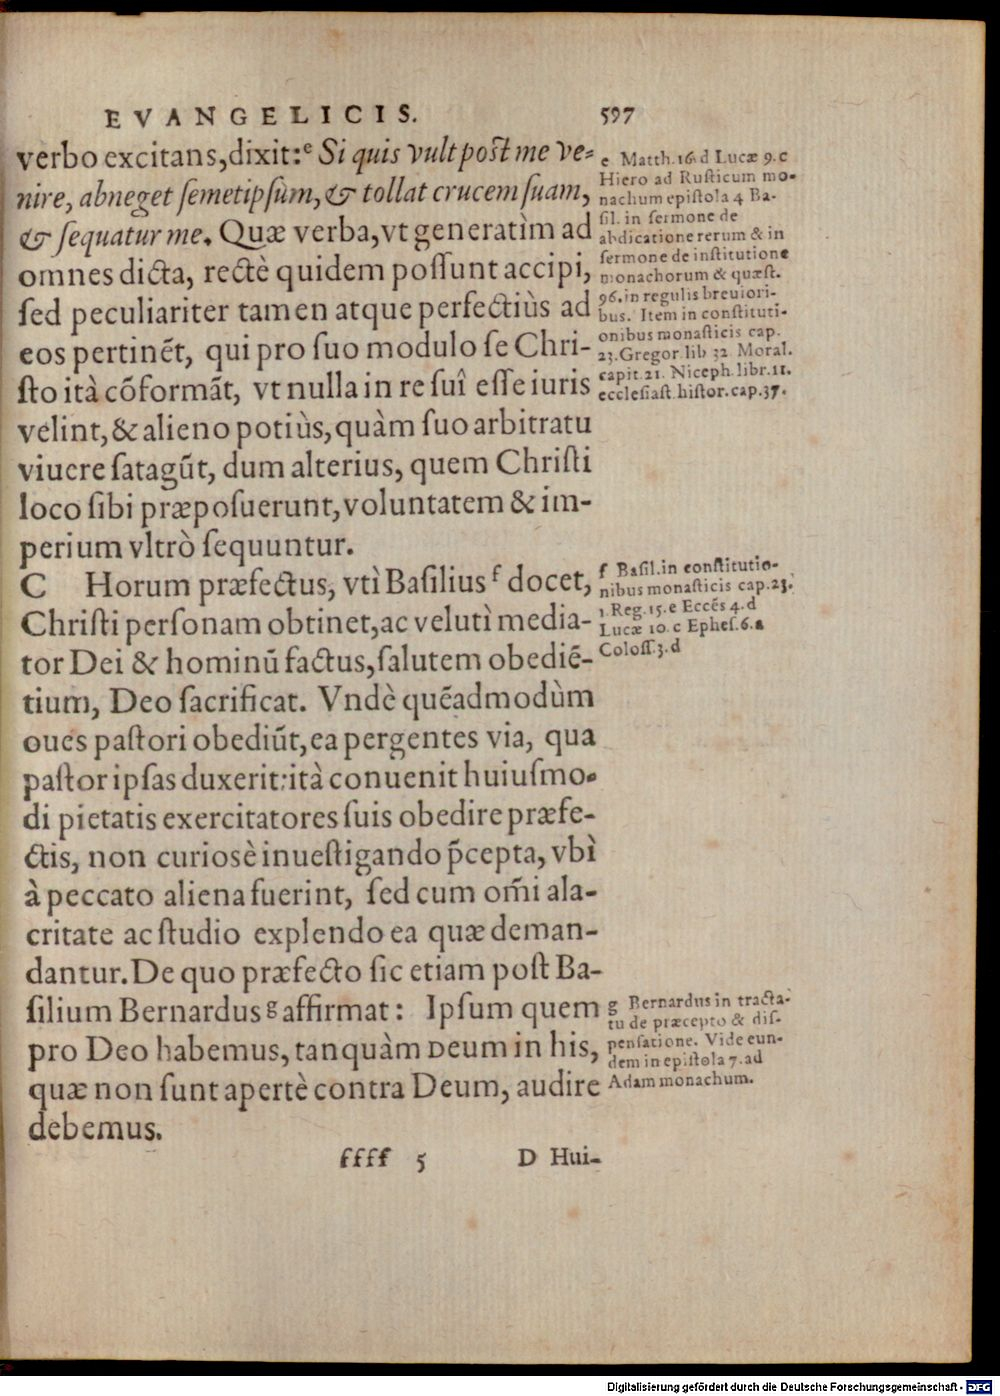 EVANGELICIS. 597
verbo excitans, dixit:ᵉ Si quis vult post me ve-
nire, abneget semetipsùm, & tollat crucem suam,
& sequatur me. Quæ verba, vt generatìm ad
omnes dicta, rectè quidem possunt accipi,
sed peculiariter tamen atque perfectiùs ad
eos pertinẽt, qui pro suo modulo se Chri-
sto ità cõformãt, vt nulla in re suî esse iuris
velint, & alieno potiùs, quàm suo arbitratu
viuere satagũt, dum alterius, quem Christi
loco sibi præposuerunt, voluntatem & im-
perium vltrò sequuntur.
e Matth. 16. d Lucæ 9. c
Hiero ad Rusticum mo-
nachum epistola 4 Ba-
sil. in sermone de
abdicatione rerum & in
sermone de institutione
monachorum & quæst.
96. in regulis breuiori-
bus. Item in constituti-
onibus monasticis cap.
23. Gregor. lib 32 Moral.
capit. 21. Niceph. libr. 11.
ecclesiast. histor. cap. 37.
C Horum præfectus, vtì Basiliusᶠ docet,
Christi personam obtinet, ac velutì media-
tor Dei & hominũ factus, salutem obediẽ-
tium, Deo sacrificat. Vndè quẽadmodùm
oues pastori obediũt, ea pergentes via, qua
pastor ipsas duxerit: ità conuenit huiusmo-
di pietatis exercitatores suis obedire præfe-
ctis, non curiosè inuestigando p̃cepta, vbì
à peccato aliena fuerint, sed cum om̃i ala-
critate ac studio explendo ea quæ deman-
dantur. De quo præfecto sic etiam post Ba-
silium Bernardusᵍ affirmat: Ipsum quem
pro Deo habemus, tanquàm Deum in his,
quæ non sunt apertè contra Deum, audire
debemus.
f Basil. in constitutio-
nibus monasticis cap. 23.
1. Reg. 15. e Eccẽs 4. d
Lucæ 10. c Ephes. 6. a
Coloss. 3. d
g Bernardus in tracta-
tu de præcepto & dis-
pensatione. Vide eun-
dem in epistola 7. ad
Adam monachum.
ffff 5 D Hui-
Digitalisierung gefördert durch die Deutsche Forschungsgemeinschaft - DFG